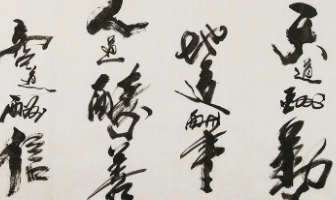 天道酬勤
地道酬善
人道酬善
商道酬信